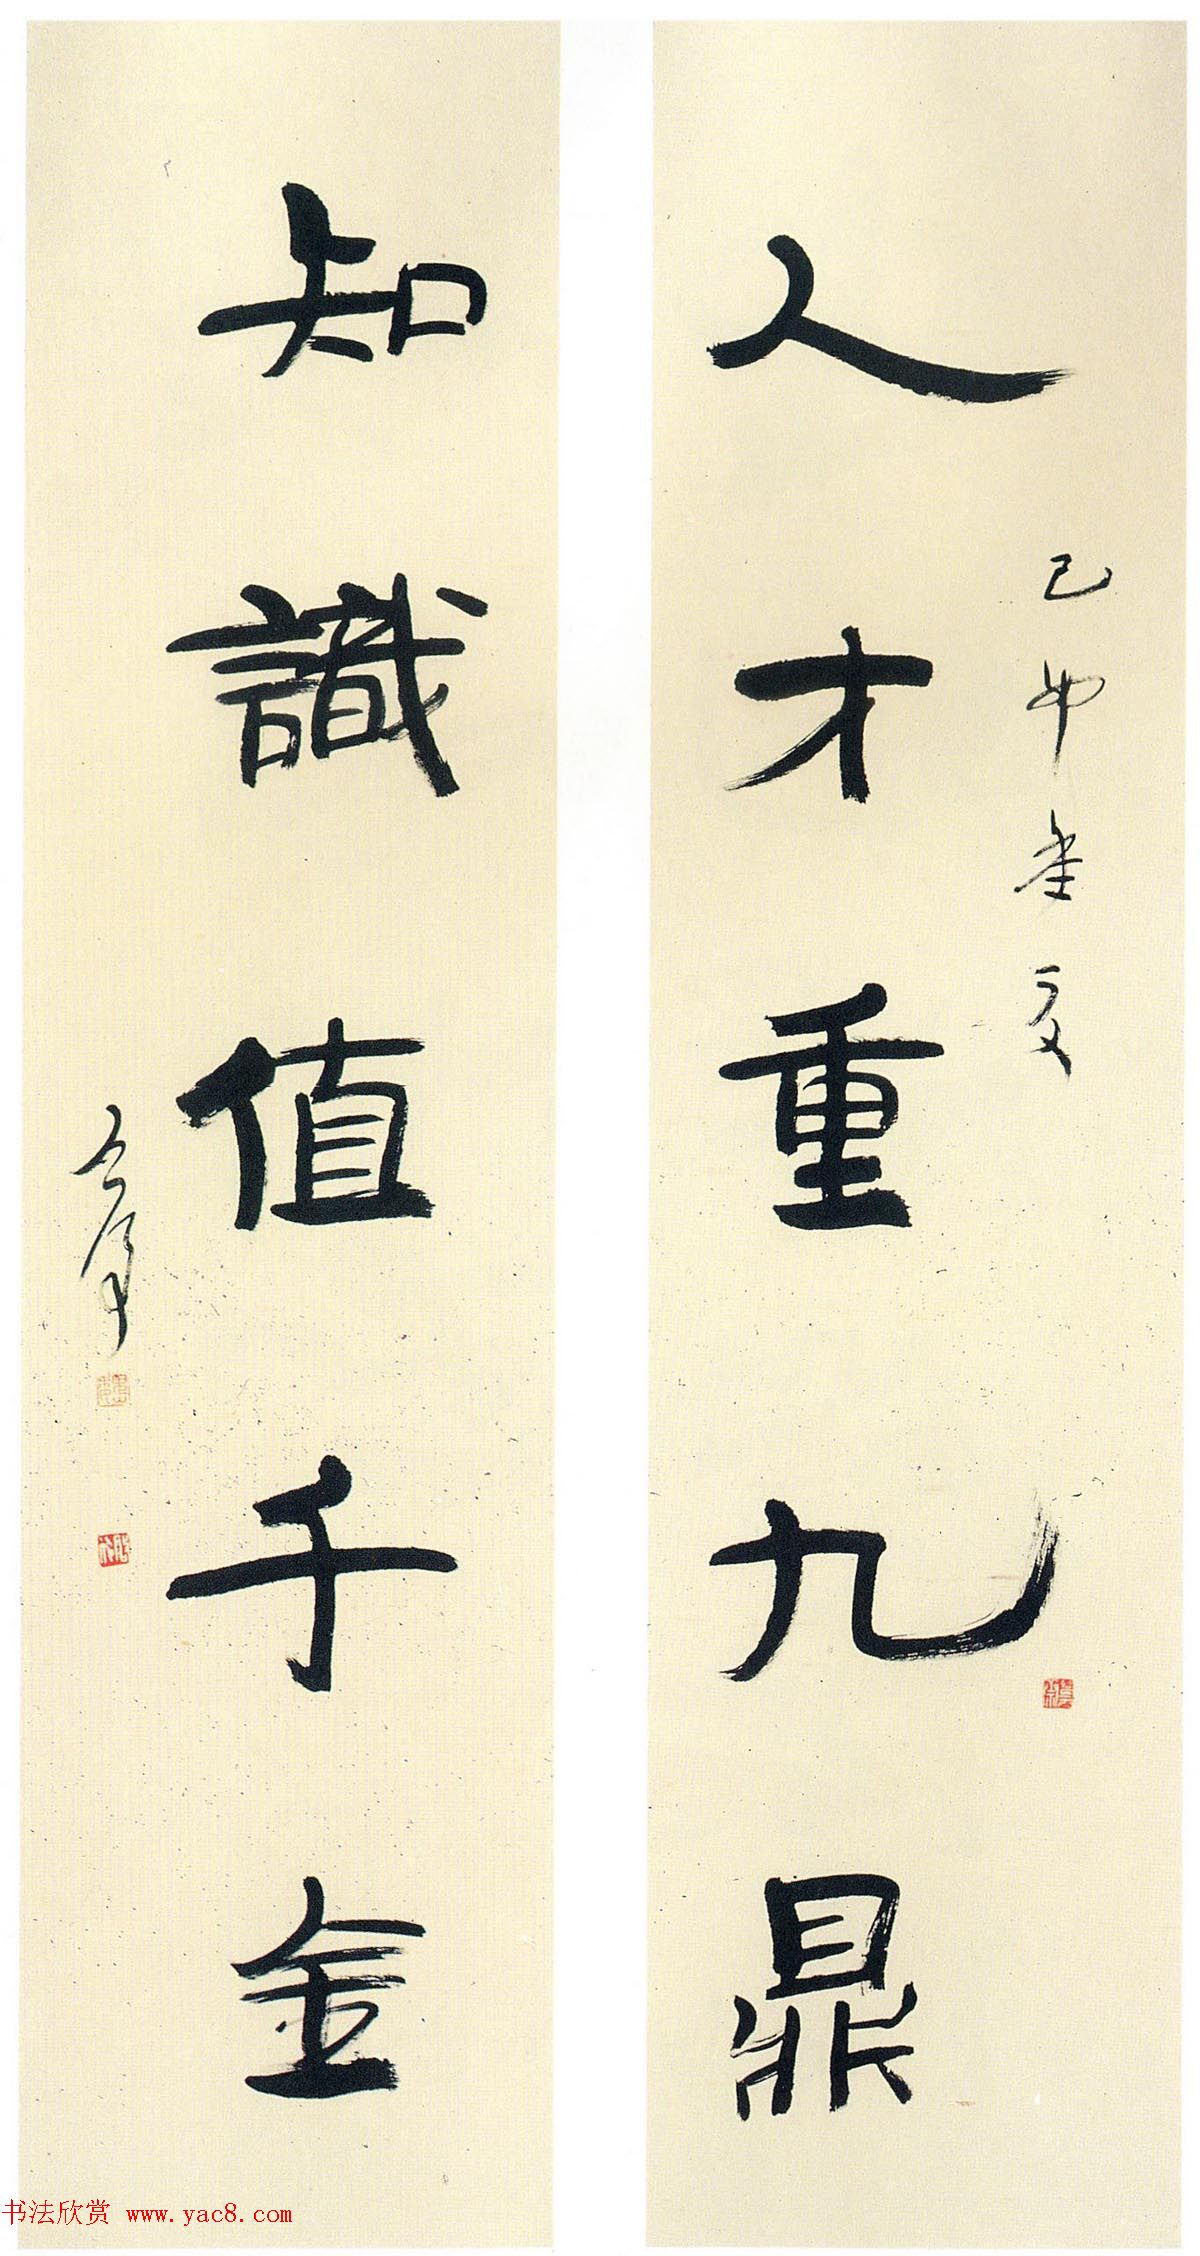 人才重九鼎
己卯年夏
知識值千金
书法欣赏 www.yac8.com